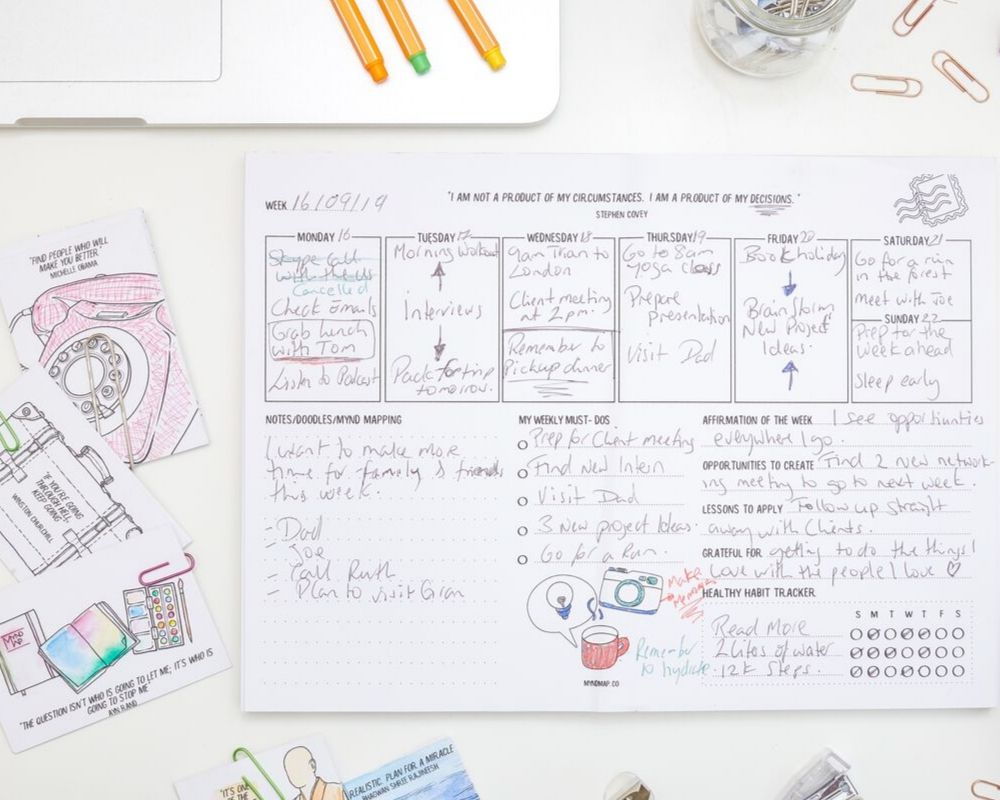 WEEK 16/09/19
"I AM NOT A PRODUCT OF MY CIRCUMSTANCES. I AM A PRODUCT OF MY DECISIONS."
STEPHEN COVEY
MONDAY 16
Skype Call
with the US
Cancelled
Check Emails
Grab lunch
with Tom
Listen to Podcast
TUESDAY 17
Morning Workout
Interviews
Pack for trip
tomorrow.
WEDNESDAY 18
9am Train to
London
Client meeting
at 2pm.
Remember to
Pickup dinner
THURSDAY 19
Go to 8am
yoga class
Prepare
presentation
Visit Dad
FRIDAY 20
Book holiday
Brainstorm
New Project
Ideas.
SATURDAY 21
Go for a run
in the forest
meet with Joe
SUNDAY 22
Prep for the
week ahead
Sleep early
NOTES/DOODLES/MYND MAPPING
I want to make more
time for family & friends
this week.
- Dad
- Joe
- Call Ruth
- Plan to visit Gran
MY WEEKLY MUST- DOS
Prep for Client meeting
Find New Intern
Visit Dad
3 New project Ideas.
Go for a Run.
Make
Memories
Remember
to hydrate
MYNDMAP.CO
AFFIRMATION OF THE WEEK I see opportunities
everywhere I go.
OPPORTUNITIES TO CREATE Find 2 new network-
ing meeting to go to next week.
LESSONS TO APPLY Follow up straight
away with Clients.
GRATEFUL FOR getting to do the things I
Love with the people I love
HEALTHY HABIT TRACKER
S M T W T F S
Read More
2 Lites of water
12K Steps.
"FIND PEOPLE WHO WILL
MAKE YOU BETTER"
MICHELLE OBAMA
"IF YOU'RE GOING
THROUGH HELL,
KEEP GOING"
WINSTON CHURCHILL
MYND
MAP
"THE QUESTION ISN'T WHO IS GOING TO LET ME; IT'S WHO IS
GOING TO STOP ME
AYN RAND
"IT'S ONE
OF THE
REALISTIC. PLAN FOR A MIRACLE
BHAGWAN SHREE RAJNEESH